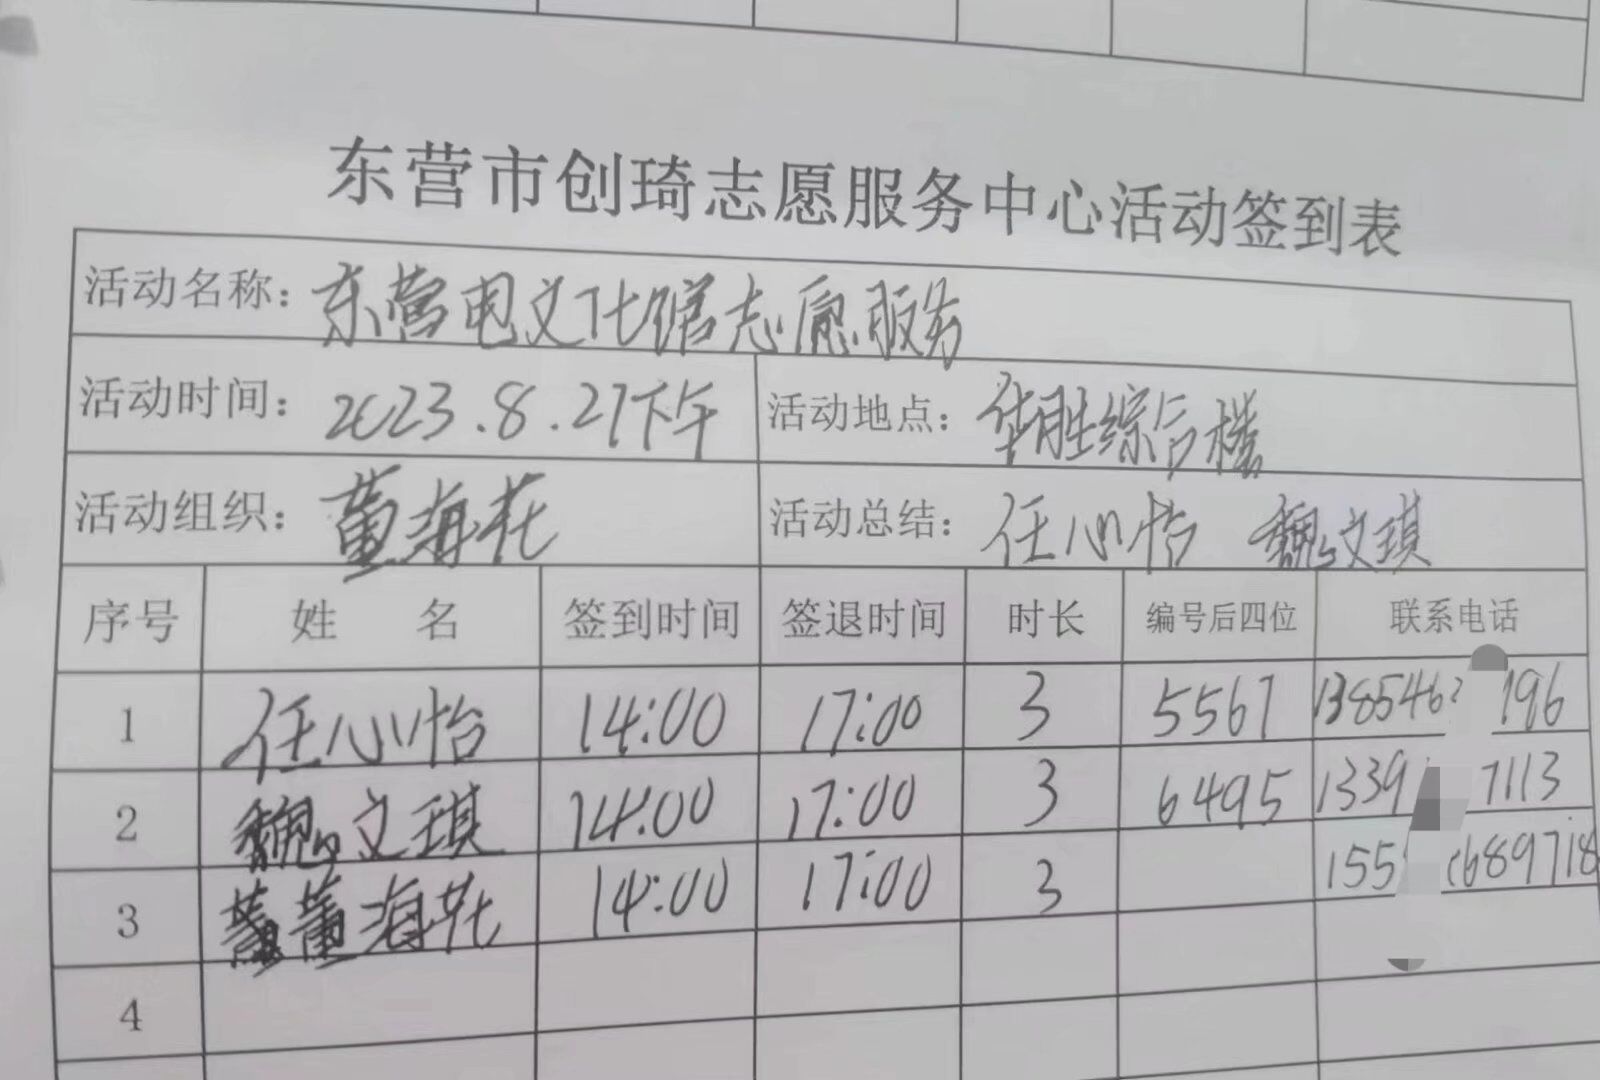 东营市创琦志愿服务中心活动签到表
活动名称：东营电文化馆志愿服务
活动时间：2023.8.27下午 活动地点：华胜综合楼
活动组织：董海花 活动总结：任心怡 魏文琪
序号 姓 名 签到时间 签退时间 时长 编号后四位 联系电话
1 任心怡 14:00 17:00 3 5567 1385463 196
2 魏文琪 14:00 17:00 3 6495 1339 7113
3 董海花 14:00 17:00 3 155 689718
4